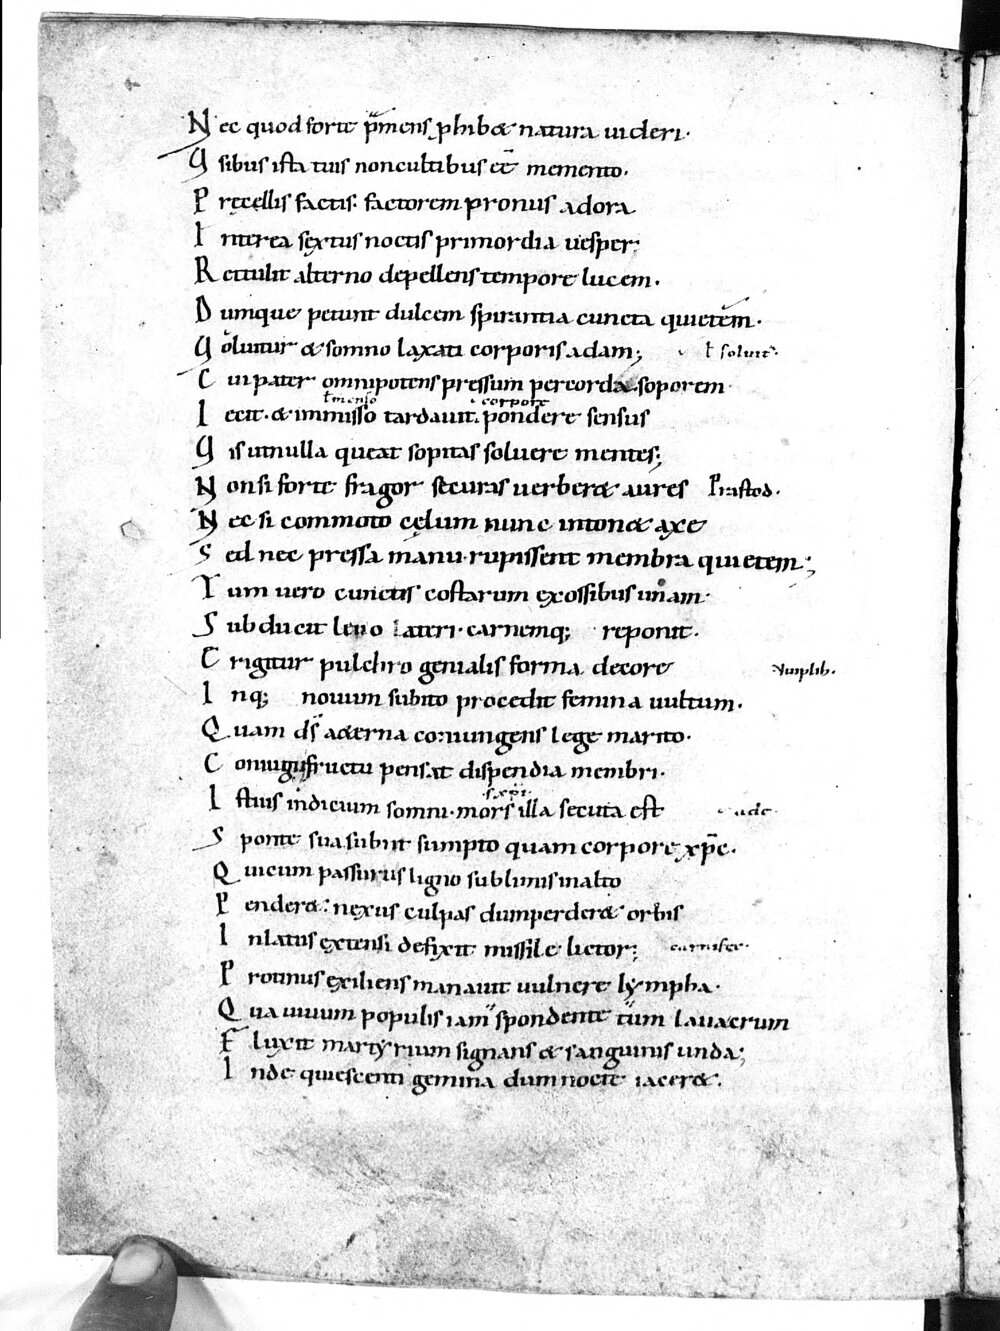 Nec quod forte p̄mens ꝓhib& natura uideri·
Vsibus ista tuis non cultibus eē memento·
Pręcellis factis· factorem pronus adora
Interea sextus noctis primordia uesper;
Rettulit alterno depellens tempore lucem·
Dumque petunt dulcem spirantia cuncta quietem·
Voluitur & somno laxati corporis adam; ł soluit·
Cui pater omnipotens pressum per corda soporem·
ł menso corpore
Iecit· & immisso tardauit pondere sensus
Vis ut nulla queat sopitas soluere mentes;
Non si forte fragor securas uerber& aures
Nec si commoto cęlum nunc inton& axe
Sed nec pressa manu· rupissent membra quietem;
Tum uero cunctis costarum ex ossibus unam·
Subducit leuo lateri· carnemq; reponit·
Erigitur pulchro genialis forma decore
Inq; nouum subito procedit femina uultum·
Quam dš a&erna coniungens lege marito·
Coniugii fructu pensat dispendia membri·
Istius indicium somni· mors illa secuta est
Sponte sua subiit sumpto quam corpore xp̄c·
Qui cum passurus ligno sublimis in alto
Pender&· nexus culpas dum perder& orbis
In latus extensi defixit missile lictor; carnifex·
Protinus exiliens manauit uulnere lympha·
Qua uiuum populis iam spondente tum lauacrum
Fluxit martyrium signans & sanguinis unda;
Inde quiescenti gemina dum nocte iacer&·